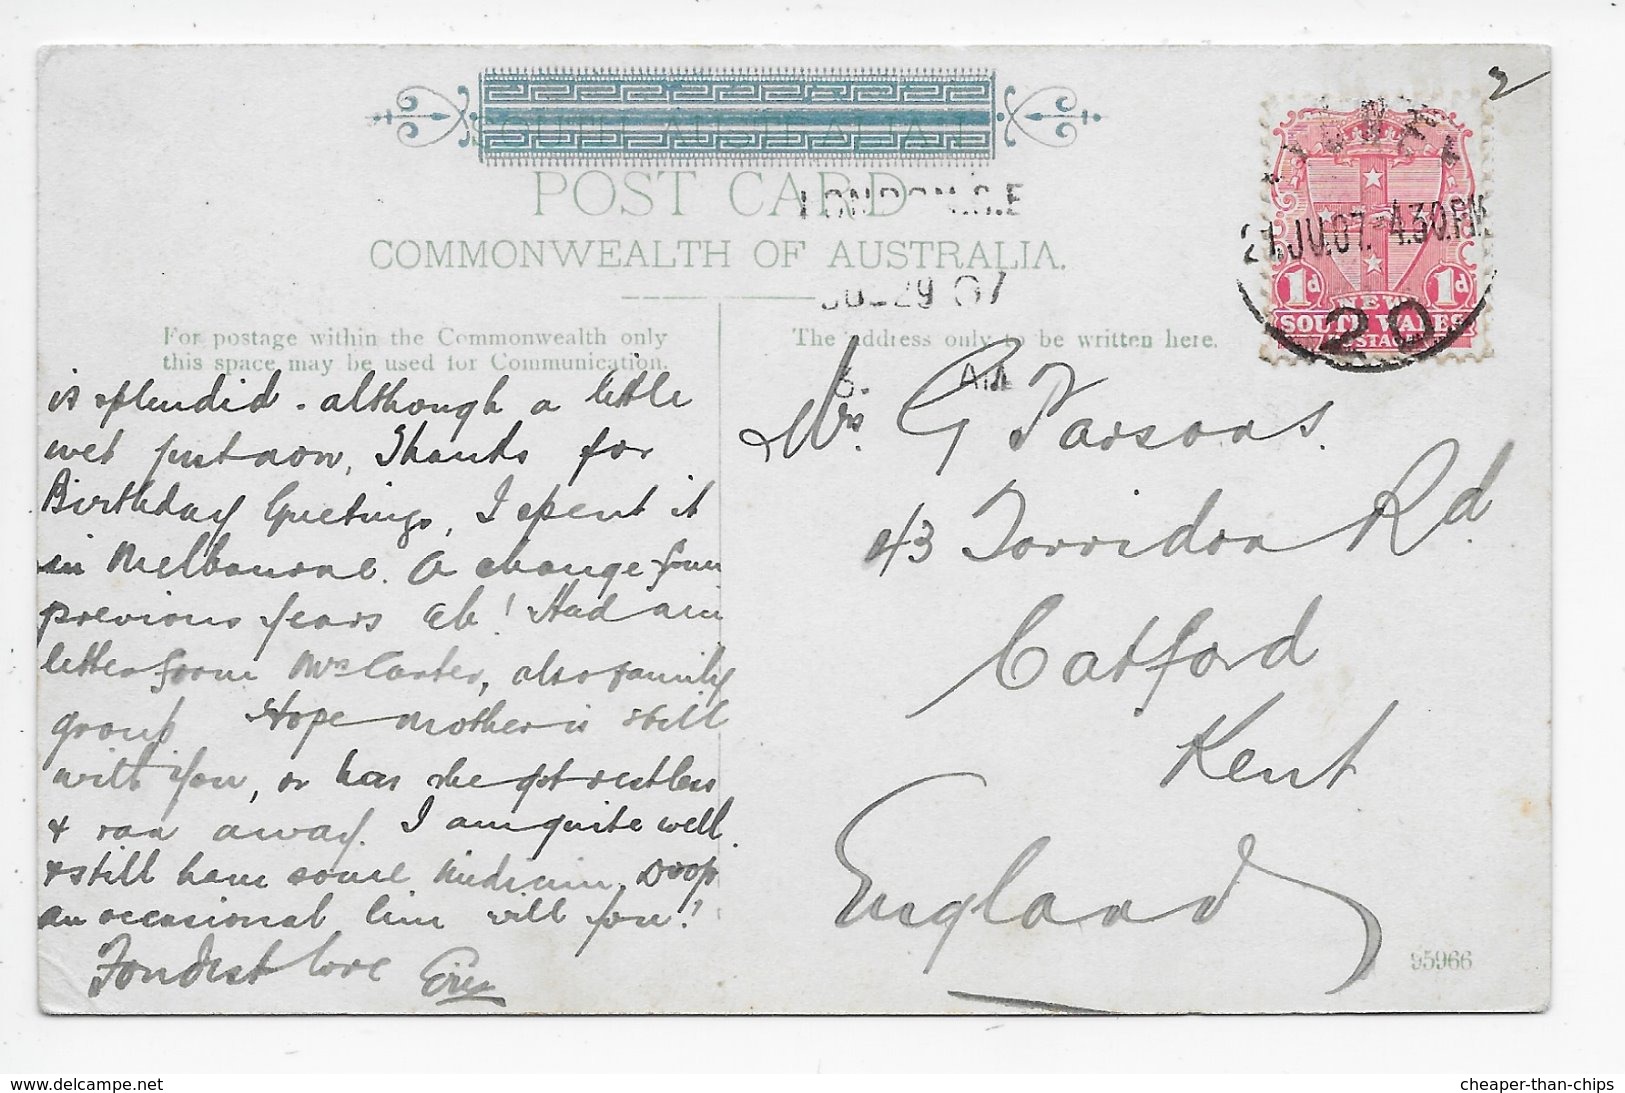 SOUTH AUSTRALIAN
POST CARD
COMMONWEALTH OF AUSTRALIA.
LONDON.S.E
JUL 29 07
For postage within the Commonwealth only
this space may be used for Communication.
The address only to be written here.
is splendid - although a little
wet just now, Thanks for
Birthday Greetings, I spent it
in Melbourne. A change from
previous years eh! Had an
letter from Mrs Carter, also family
group Hope mother is still
with you, or has she got restless
& ran away. I am quite well
& still have some medicine. Drop
an occasional line will you!
Fondest love
Mrs. G Parsons.
43 Torridon Rd.
Catford
Kent
England
2
21.JU.07. 4.30.PM
20
1d 1d
NEW
SOUTH WALES
POSTAGE
95966
www.delcampe.net
cheaper-than-chips